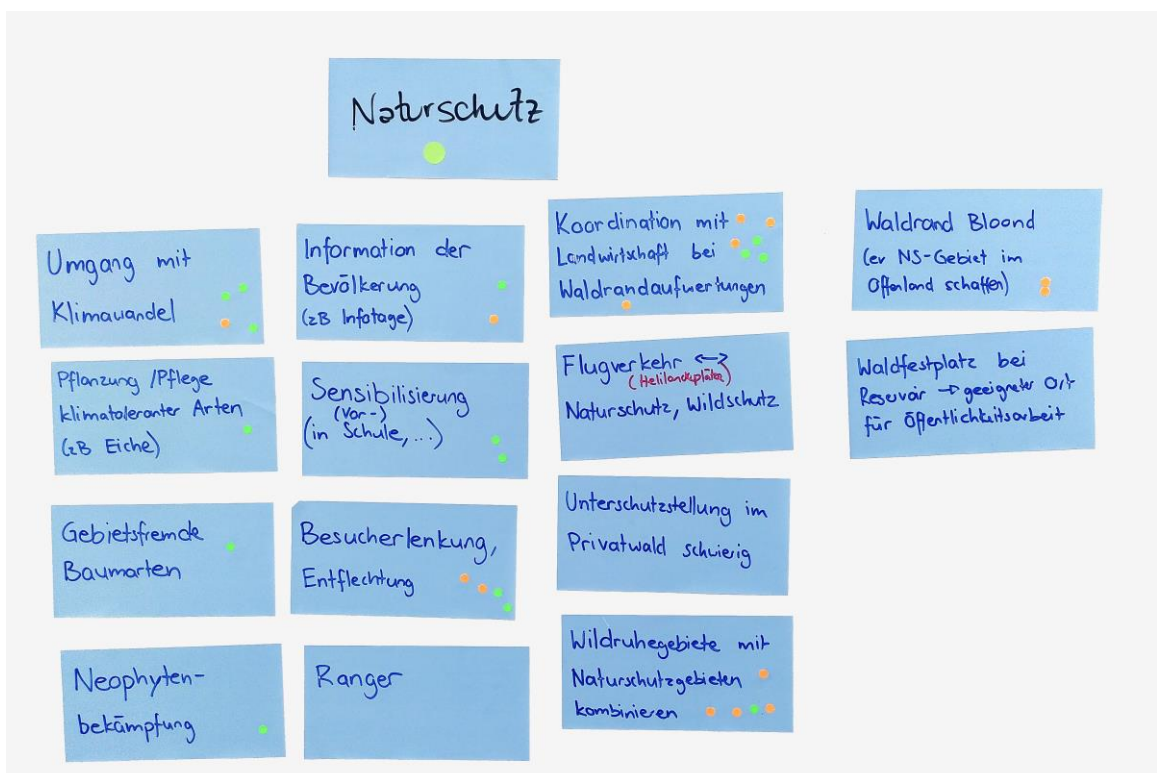 Naturschutz
Umgang mit
Klimawandel
Pflanzung / Pflege
klimatoleranter Arten
(zB Eiche)
Gebietsfremde
Baumarten
Neophyten-
bekämpfung
Information der
Bevölkerung
(zB Infotage)
Sensibilisierung
(Vor-)
(in Schule, ...)
Besucherlenkung,
Entflechtung
Ranger
Koordination mit
Landwirtschaft bei
Waldrandaufwertungen
Flugverkehr <->
(Helilandeplätze)
Naturschutz, Wildschutz
Unterschutzstellung im
Privatwald schwierig
Wildruhegebiete mit
Naturschutzgebieten
kombinieren
Waldrand Bloond
(ev NS-Gebiet im
Offenland schaffen)
Waldfestplatz bei
Reservoir → geeigneter Ort
für Öffentlichkeitsarbeit